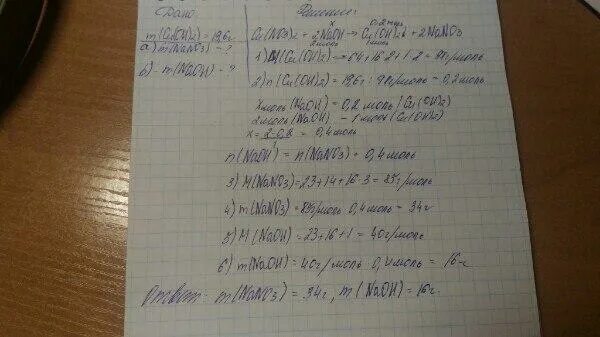 Дано:
Решение:
m(Cu(OH)2) = 19,6г
а) m(NaNO3) - ?
б) - m(NaOH) - ?
x 0,2 моль
Cu(NO3)2 + 2NaOH → Cu(OH)2↓ + 2NaNO3
2 моль 1 моль
1) M(Cu(OH)2) = 64+16·2+1·2 = 98г/моль
2) n(Cu(OH)2) = 19,6г : 98г/моль = 0,2 моль
x моль (NaOH) = 0,2 моль (Cu(OH)2)
2 моль (NaOH) - 1 моль (Cu(OH)2)
x = 2·0,2 = 0,4 моль
n(NaOH) = n(NaNO3) = 0,4 моль
3) M(NaNO3) = 23+14+16·3 = 85г/моль
4) m(NaNO3) = 85г/моль 0,4 моль = 34г
5) M(NaOH) = 23+16+1 = 40г/моль
6) m(NaOH) = 40г/моль 0,4 моль = 16г
Ответ: m(NaNO3) = 34г, m(NaOH) = 16г.